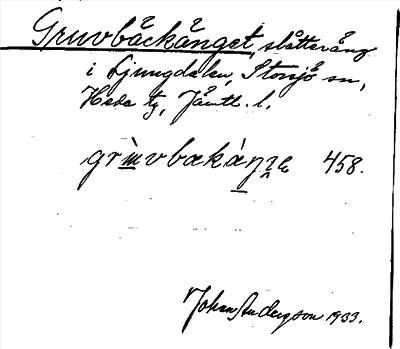 Gruvbäckänget, slåtteräng
i Ljungdalen, Storsjö sn,
Hede tg, Jämtl. l.
458.
Johan Anderson 1933.